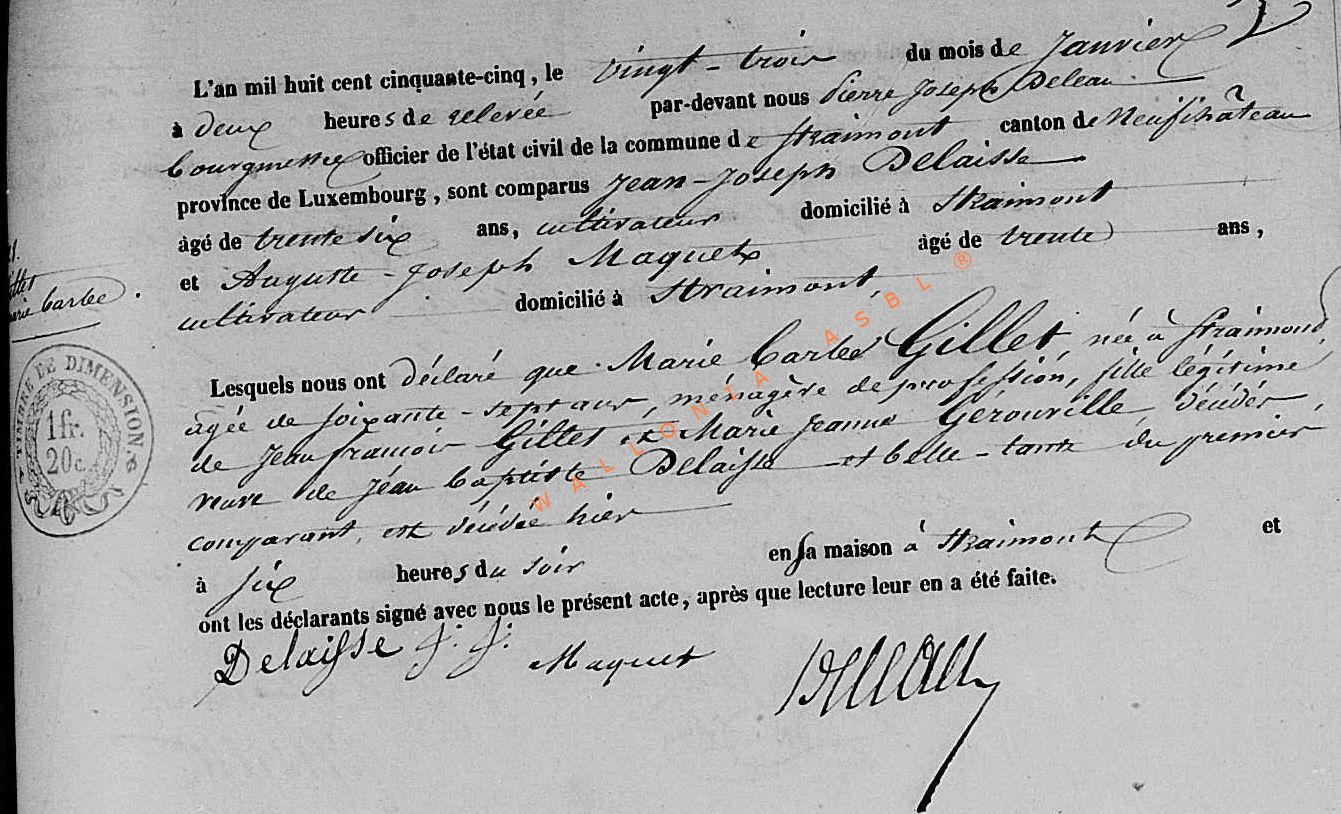 L'an mil huit cent cinquante-cinq, le vingt-trois du mois de Janvier
à deux heures de relevée par-devant nous Pierre Joseph Deleau
bourgmestre officier de l'état civil de la commune de Straimont canton de Neufchâteau
province de Luxembourg, sont comparus Jean-Joseph Delaisse
âgé de trente six ans, cultivateur domicilié à Straimont
et Auguste-Joseph Maquet âgé de trente ans,
cultivateur domicilié à Straimont,
Lesquels nous ont déclaré que Marie Barbe Gillet, née à Straimond,
agée de soixante-sept ans, ménagère de profession, fille légitime
de Jean françois Gillet et Marie Jeanne Gérouville décédés
veuve de Jéan baptiste Delaisse et belle-tante du premier
comparant, est décédée hier
à six heures du soir en sa maison à Straimont et
ont les déclarants signé avec nous le présent acte, après que lecture leur en a été faite.
Delaisse J. J. Maquet Deleau
barbe
TIMBRE DE DIMENSION.
1fr.
20c.
WALLONIA ASBL ®